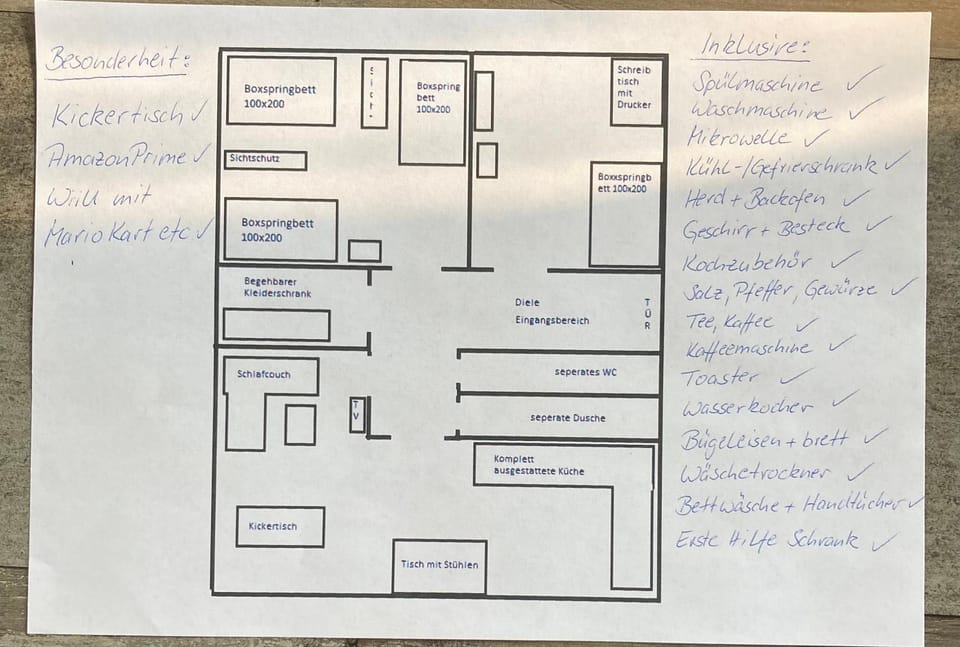 Besonderheit:
Kickertisch ✓
AmazonPrime ✓
Wiill mit
MarioKart etc ✓
Boxspringbett
100x200
Sicht
Boxspring
bett
100x200
Schreib
tisch
mit
Drucker
Sichtschutz
Boxxspringb
ett 100x200
Boxspringbett
100x200
Begehbarer
Kleiderschrank
Diele
Eingangsbereich
TÜR
Schlafcouch
TV
seperates WC
seperate Dusche
Komplett
ausgestattete Küche
Kickertisch
Tisch mit Stühlen
Inklusive:
Spülmaschine ✓
Waschmaschine ✓
Mikrowelle ✓
Kühl-/Gefrierschrank ✓
Herd + Backofen ✓
Geschirr + Besteck ✓
Kochzubehör ✓
Salz, Pfeffer, Gewürze ✓
Tee, Kaffee ✓
Kaffeemaschine ✓
Toaster ✓
Wasserkocher ✓
Bügeleisen + brett ✓
Wäschetrockner ✓
Bettwäsche + Handtücher ✓
Erste Hilfe Schrank ✓